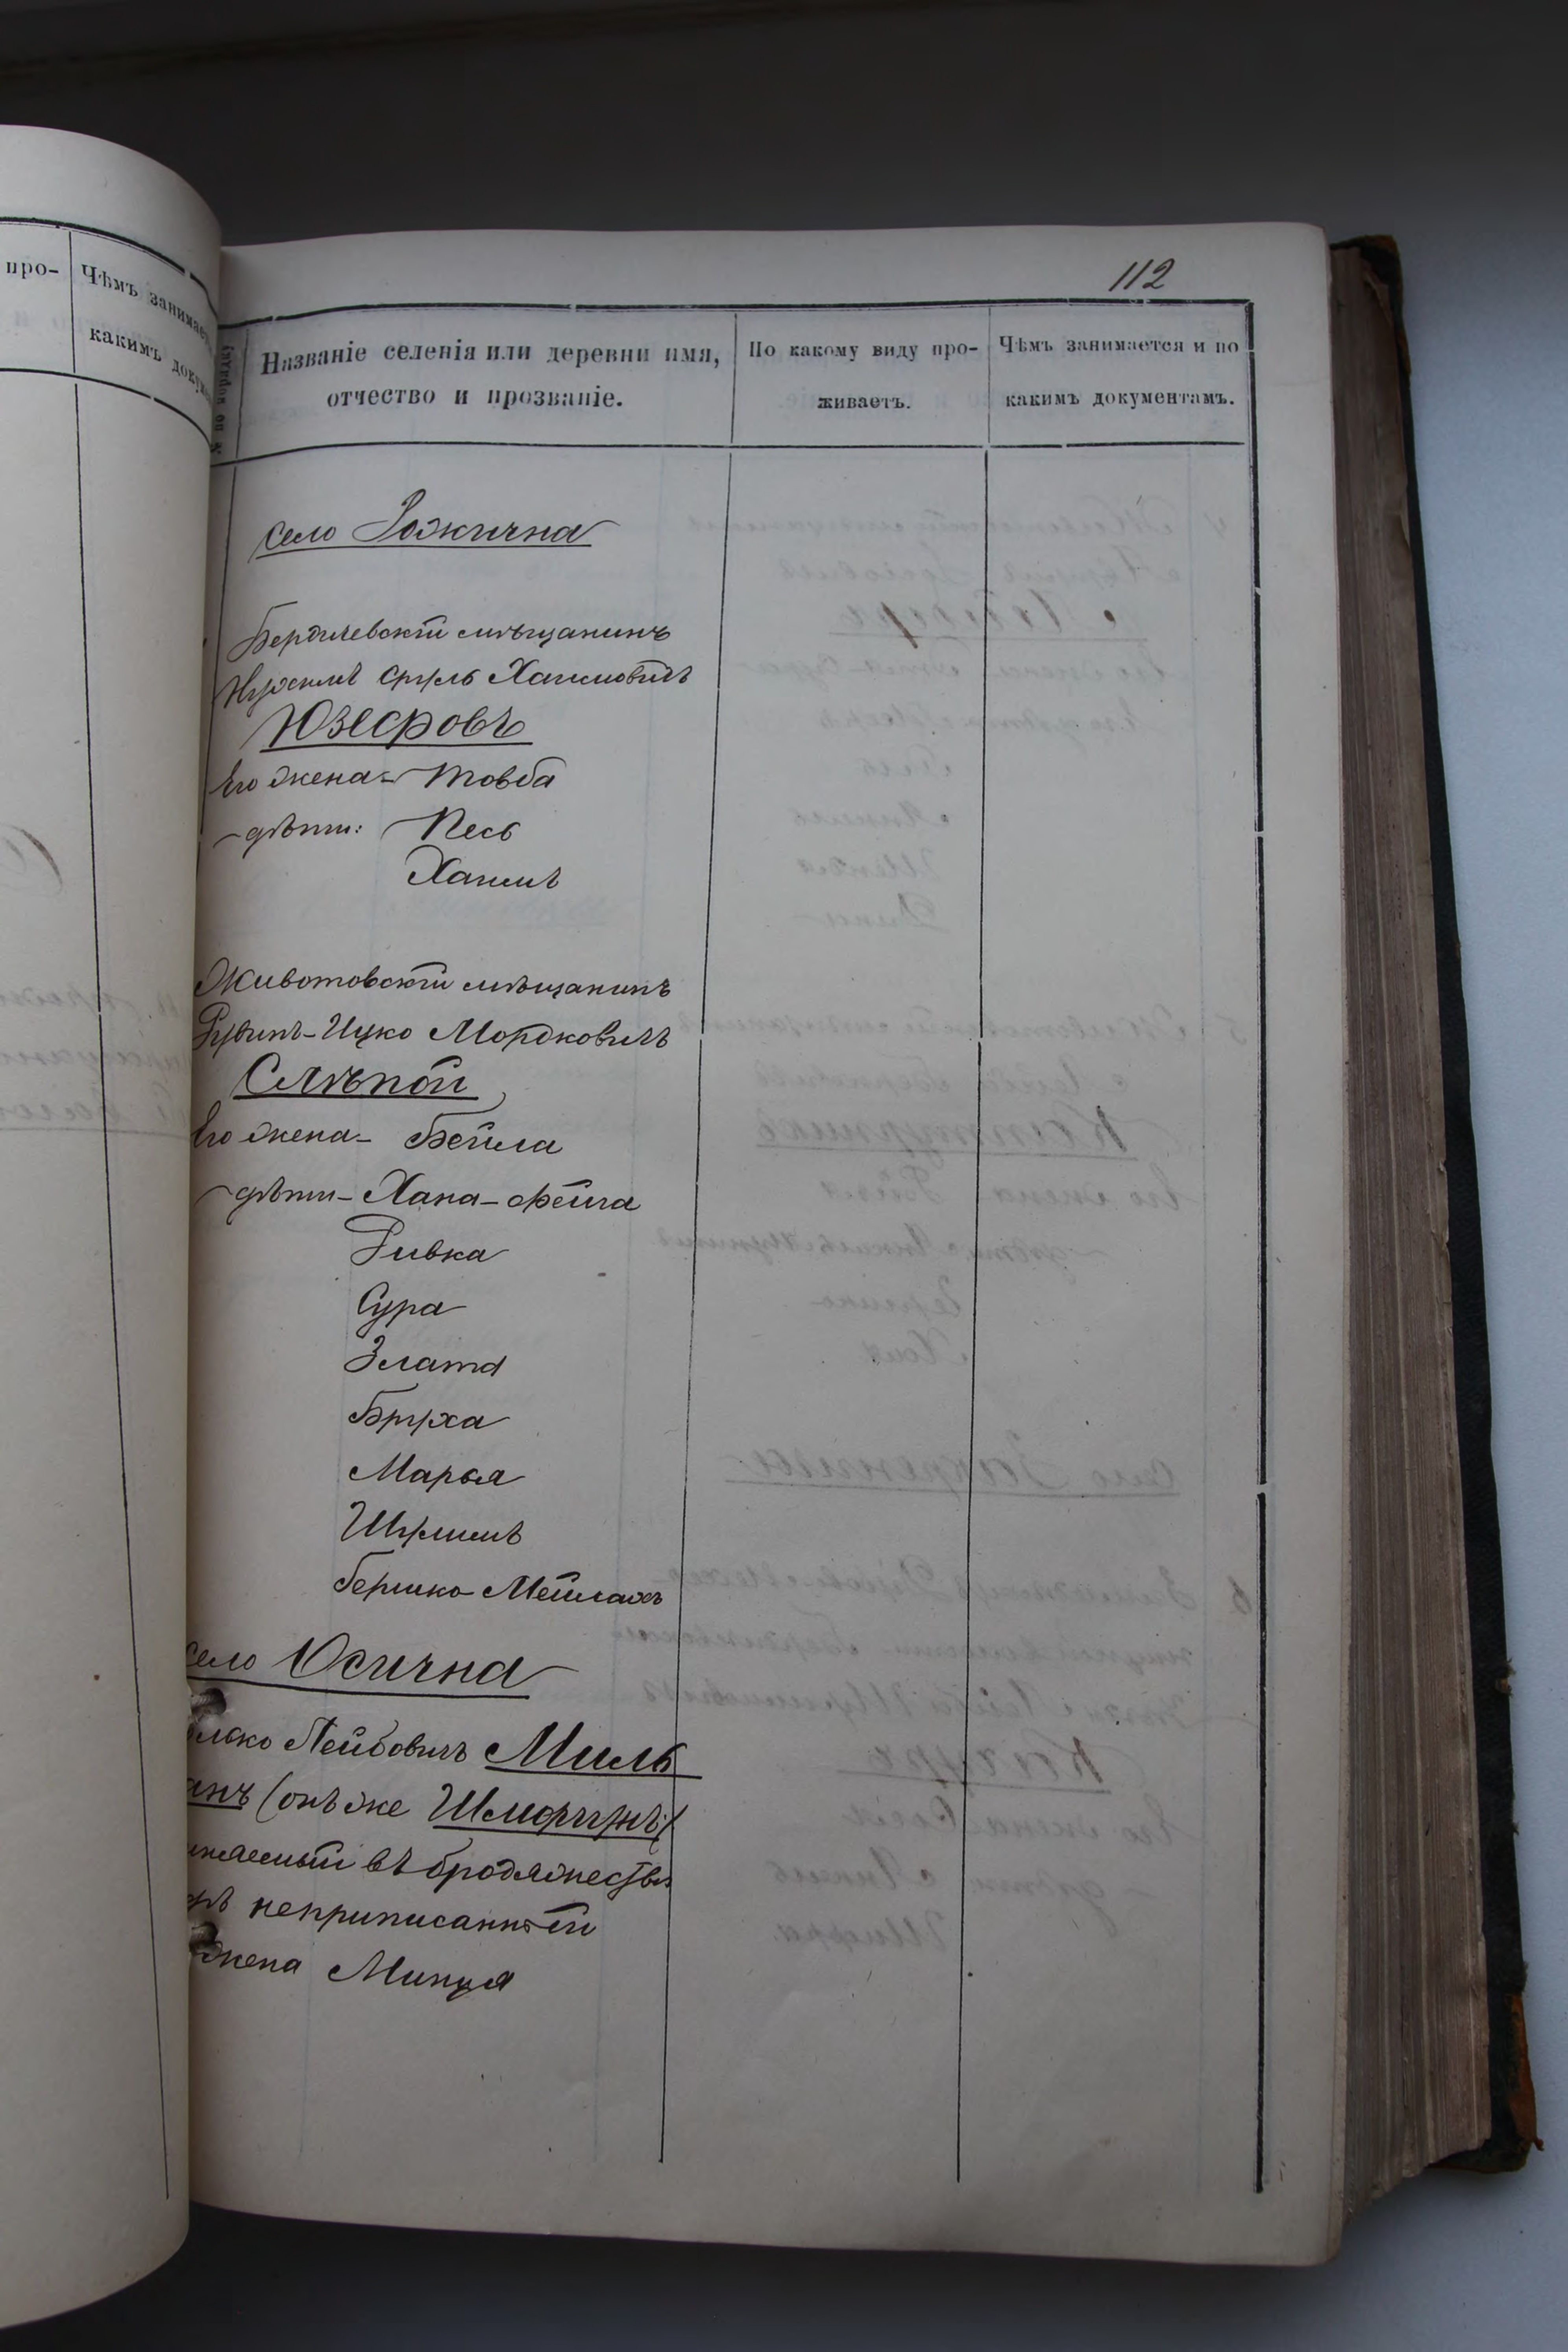 про-
Чѣмъ занимает
какимъ доку
112
№ по порядку
Названіе селенія или деревни имя,
отчество и прозваніе.
По какому виду про-
живаетъ.
Чѣмъ занимается и по
какимъ документамъ.
село Рожична
Бердичевскій мѣщанинъ
Нухимъ Сруль Хаимовичъ
Юзефовъ
Его жена - Товба
дѣти: Песь
Хаимъ
Животовскій мѣщанинъ
Рувинъ-Ицко Мордковичъ
Слѣпой
Его жена - Бейла
дѣти - Хана-Фейга
Ривка
Сура
Злата
Бруха
Марья
Шулимъ
Гершко Мейлахъ
село Осична
лько Лейбовичъ Миль
анъ (онъ же
жаемый въ бродяжествѣ
неприписанный
жена Минця